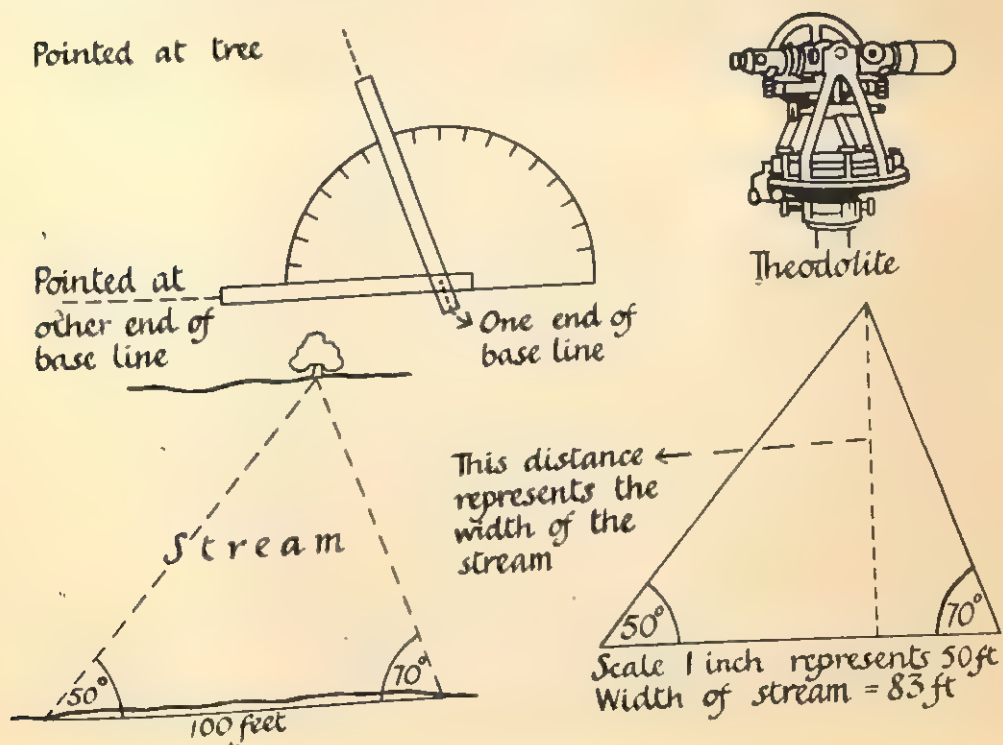 Pointed at tree
Theodolite
Pointed at
other end of
base line
One end of
base line
Stream
50°
70°
100 feet
This distance
represents the
width of the
stream
50°
70°
Scale 1 inch represents 50 ft
Width of stream = 83 ft